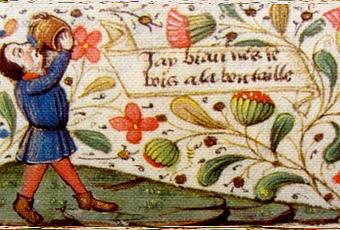 Jay biau nes ie
bois a la boutaille